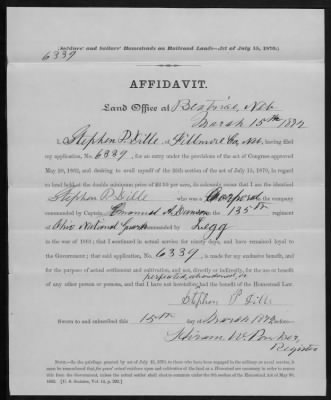 (Soldiers' and Sailors' Homesteads on Railroad Lands—Act of July 15, 1870.)
6339
AFFIDAVIT.
Land Office at Beatrice, Neb
March 15th 1872
I, Stephen P. Dille, of Fillmore Co, Neb, having filed
my application, No. 6339, for an entry under the provisions of the act of Congress approved
May 20, 1862, and desiring to avail myself of the 25th section of the act of July 15, 1870, in regard
to land held at the double minimum price of $2.50 per acre, do solemnly swear that I am the identical
Stephen P. Dille who was a Corporal in the
company commanded by Captain Emanuel M. in the 135th regiment
Ohio National Guard commanded by Legg
in the war of 1861; that I continued in actual service for ninety days, and have remained loyal to
the Government; that said application, No. 6339, is made for my exclusive benefit, and
for the purpose of actual settlement and cultivation, and not, directly or indirectly, for the use or benefit
of any other person or persons, and that I have not heretofore perfected or abandoned an had the benefit of the Homestead Law.
Stephen P Dille
Sworn to and subscribed this 15th day of March 1872 before
Hiram W. Parker,
Register
NOTE.—In the privilege granted by act of July 15, 1870, to those who have been engaged in the military or naval service, it
must be remembered that five years' actual residence upon and cultivation of the land as a Homestead are necessary in order to secure
title from the Government, unless the actual settler shall elect to commute under the 8th section of the Homestead Act of May 20,
1862. [U. S. Statutes, Vol. 12, p. 392.]